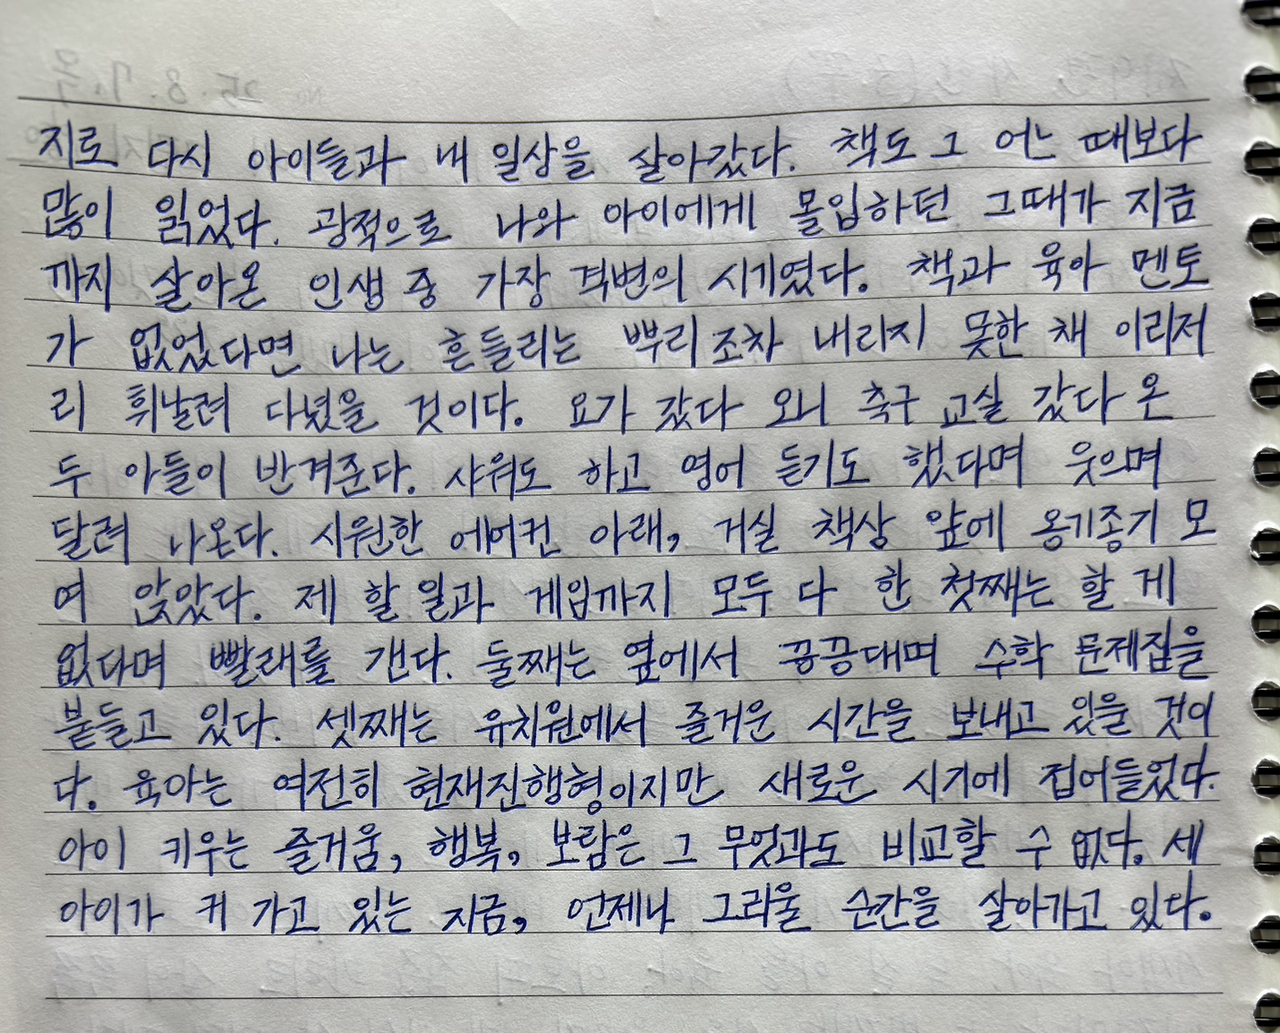 지로 다시 아이들과 내 일상을 살아갔다. 책도 그 어느 때보다
많이 읽었다. 광적으로 나와 아이에게 몰입하던 그때가 지금
까지 살아온 인생 중 가장 격변의 시기였다. 책과 육아 멘토
가 없었다면 나는 흔들리는 뿌리조차 내리지 못한 채 이리저
리 휘날려 다녔을 것이다. 요가 갔다 오니 축구 교실 갔다 온
두 아들이 반겨준다. 샤워도 하고 영어 듣기도 했다며 웃으며
달려 나온다. 시원한 에어컨 아래, 거실 책상 앞에 옹기종기 모
여 앉았다. 제 할 일과 게임까지 모두 다 한 첫째는 할 게
없다며 빨래를 갠다. 둘째는 옆에서 끙끙대며 수학 문제집을
붙들고 있다. 셋째는 유치원에서 즐거운 시간을 보내고 있을 것이
다. 육아는 여전히 현재진행형이지만 새로운 시기에 접어들었다.
아이 키우는 즐거움, 행복, 보람은 그 무엇과도 비교할 수 없다. 세
아이가 커 가고 있는 지금, 언제나 그리울 순간을 살아가고 있다.